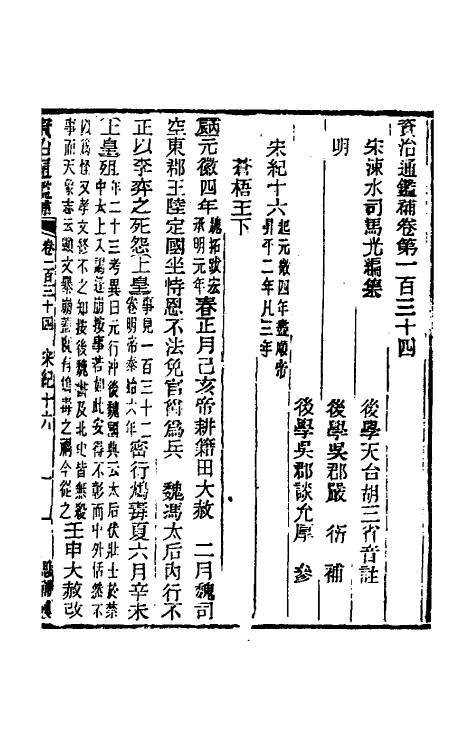 資治通鑑補卷第一百三十四
宋涑水司馬光編集
後學天台胡三省音註
明
後學吳郡嚴 衍 補
後學吳郡談允厚 參
宋紀十六起元徽四年盡順帝昇平二年凡三年
蒼梧王下
元徽四年魏拓跋宏承明元年春正月己亥帝耕籍田大赦 二月魏司
空東郡王陸定國坐恃恩不法免官爵爲兵 魏馮太后內行不
正以李弈之死怨上皇事見一百三十二卷明帝泰始六年密行鴆毒夏六月辛未
上皇殂年二十三考異曰元行沖後魏國典云太后伏壯士於禁中太上入謁遂崩按事若如此安得不彰而中外恬然不
以爲怪又孝文終不之知按後魏書及北史皆無殺事而天象志云顯文暴崩蓋實有鴆毒之禍今從之壬申大赦改
資治通鑑補 卷一百三十四 宋紀十六 一